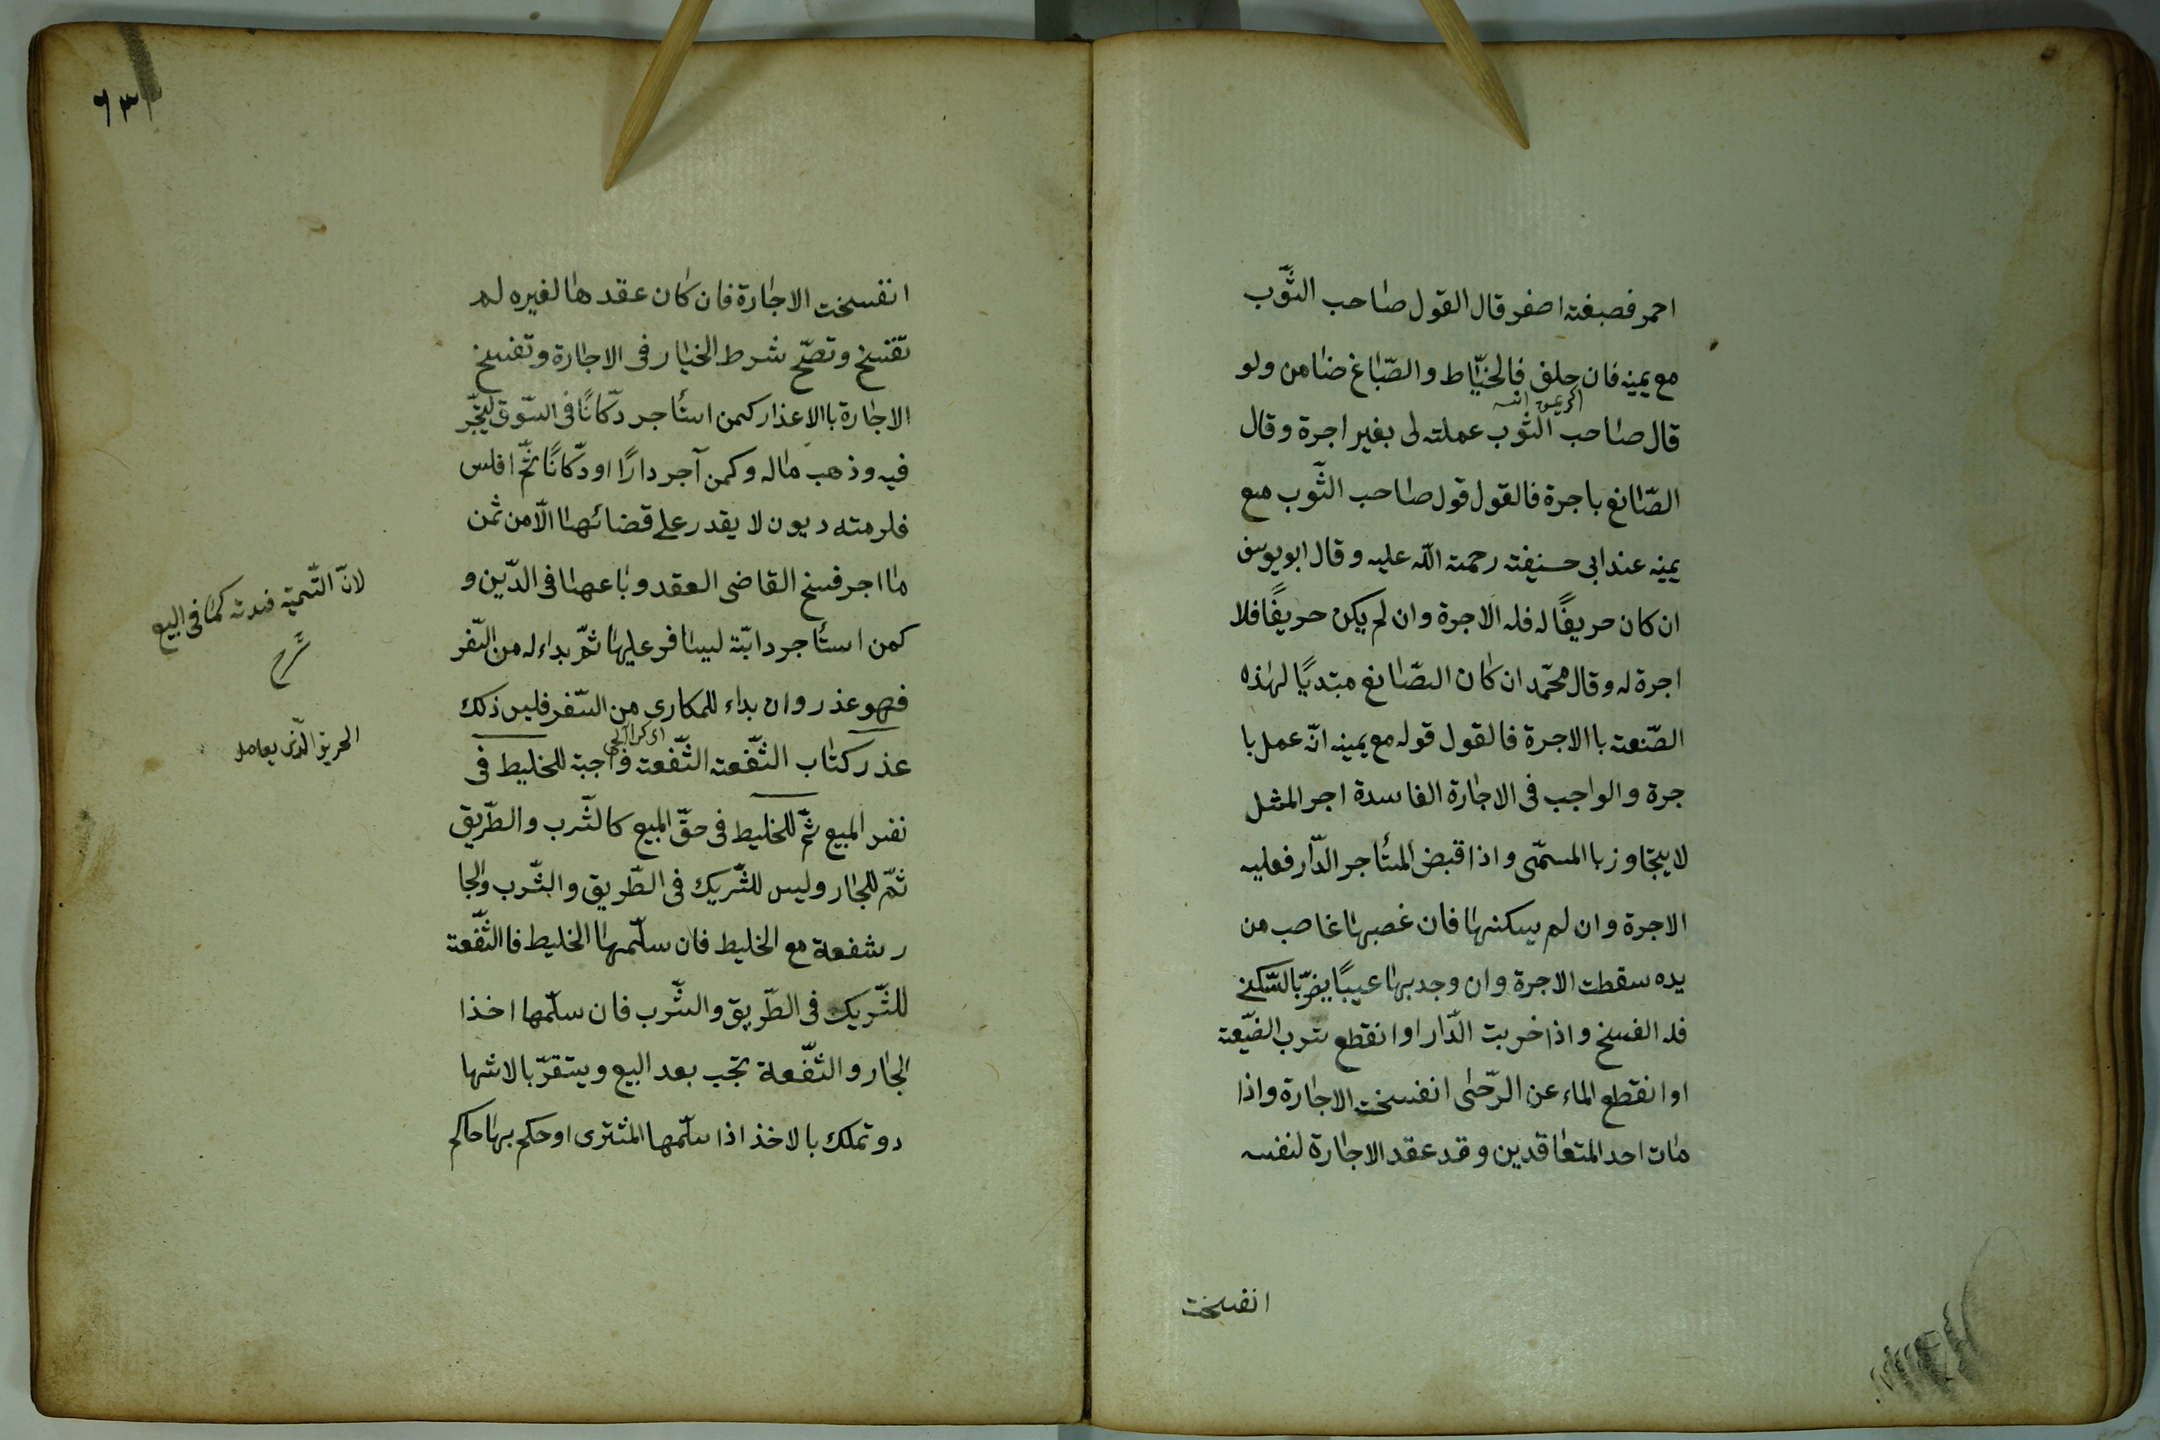 احمر فصبغته اصفر قال القول صاحب الثّوب
مع يمينه فان حلف فالخيّاط والصّباغ ضامن ولو
قال صاحب الثوب عملته لى بغير اجرة وقال
الصّانع باجرة فالقول قول صاحب الثّوب مع
يمينه عند ابى حنيفته رحمته اللّه عليه وقال ابو يوسف
ان كان حريفًا له فله الاجرة وان لم يكن حريفًا فلا
اجرة له وقال محمّد ان كان الصّانع مبتديًا لهٰذه
الصّنعته باالاجرة فالقول قوله مع يمينه انّه عمل با
جرة والواجب فى الاجارة الفاسدة اجر المثل
لا يتجاوز باالمسمّى واذا قبض المستأجر الدّار فعليه
الاجرة وان لم يسكنها فان غصبها غاصب من
يده سقطت الاجرة وان وجد بها عيبًا يضرّ باالسّكنى
فله الفسخ واذا خربت الدّار او انقطع شرب الضّيعته
او انقطع الماء عن الرّحى انفسخت الاجارة واذا
مات احد المتعاقدين وقد عقد الاجارة لنفسه
انفسخت
٦٣
انفسخت الاجارة فان كان عقدها لغيره لم
تفسخ وتصّح شرط الخيار فى الاجارة وتفسخ
الاجارة باالاعذار كمن استأجر دكّانًا فى السّوق ليتّجر
فيه وذهب ماله وكمن آجر دارًا او دكّانًا ثمّ افلس
فلزمته ديون لا يقدر على قضائها الّا من ثمن
ما اجر فسخ القاضى العقد وباعها فى الدّين و
كمن استأجر دابّة ليسافر عليها ثمّ بداء له من السّفر
فهو عذر وان بداء للمكارى من السّفر فليس ذلك
عذر كتاب الشّفعته الشّفعته واجبة للخليط فى
نفس المبيع ثمّ للخليط فى حقّ المبيع كالشّرب والطّريق
ثمّ للجار وليس للشّريك فى الطّريق والشّرب والجا
ر شفعة مع الخليط فان سلّمها الخليط فاالشّفعة
للشّريك فى الطّريق والشّرب فان سلّمها اخذا
الجار والشّفعة تجب بعد البيع ويستقرّ بالاشها
دو تملك بالاخذ اذا سلّمها المشترى او حكم بها حاكم
لانّ التّسمية فسدته كما فى البيع
شرح
الحريف الّذى يعامله